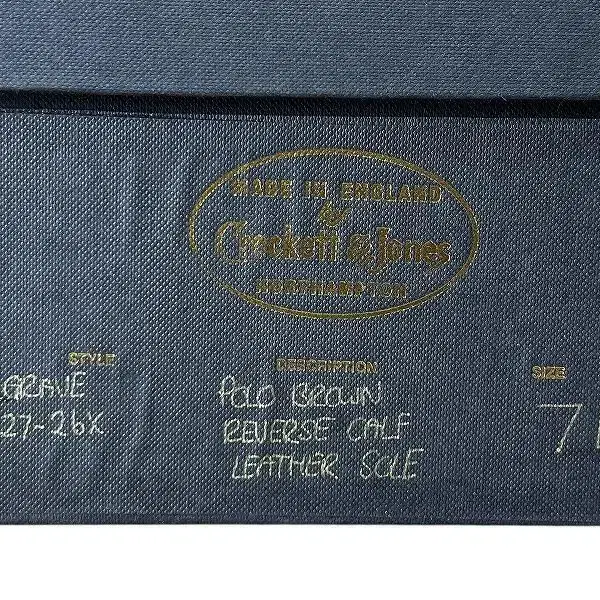 MADE IN ENGLAND
by
Crockett & Jones
NORTHAMPTON
STYLE
GRAVE
27-26X
DESCRIPTION
POLO BROWN
REVERSE CALF
LEATHER SOLE
SIZE
7